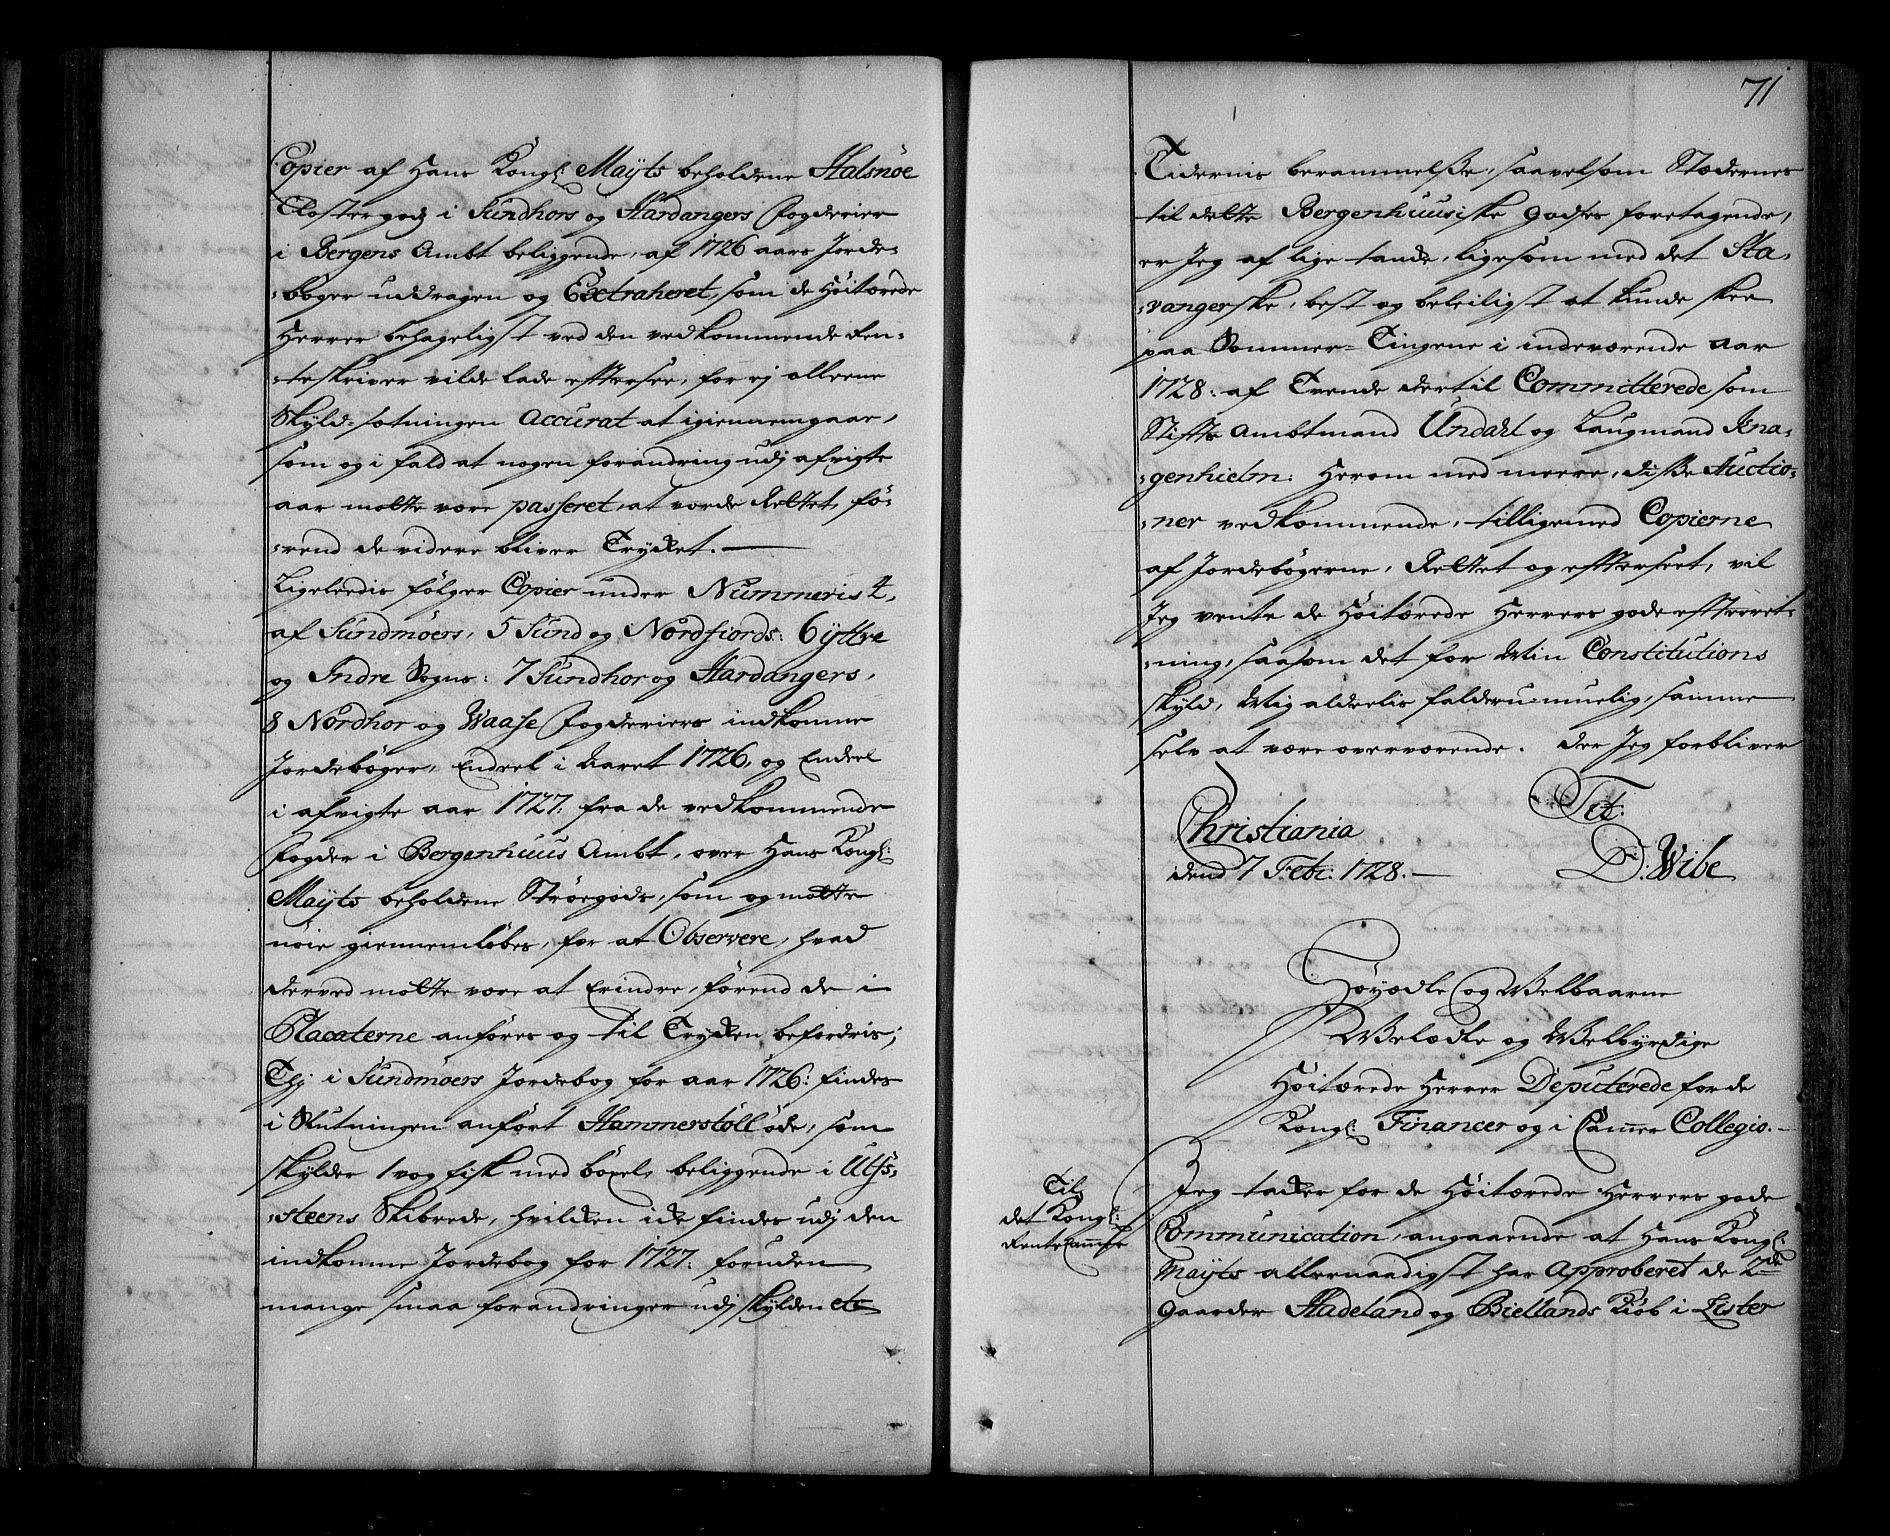 Copier af Hans Kongl: Mayts beholdene Halsnöe
Closter godz i Sundhors og Hardangers Fogderier
i Bergens Ambt beliggende, af 1726 aars Jorde-
:bøger uddragen og Extraheret, som de Høitærede
Herrer behageligst ved den vedkommende Ren-
:teskriver vilde lade eftersee, for ej alleene
Skyld-sætningen Accurat at igiennemgaae,
som og i fald at nogen forandring udj afvigte
aar motte være passeret, at vorde Rettet, fö-
:rend de videre bliver Trykt.
Ligeleedis fölger Copier under Nummeris 4,
af Sundmöers, 5 Sund og Nordfiords: 6 yttre
og Indre Sogns: 7 Sundhor og Hardangers,
8 Nordhor og Waase Fogderiers indkomne
Jordebøger, Endeel i Aaret 1726, og Endeel
i afvigte aar 1727: fra de vedkommende
Fogder i Bergenhuus Ambt, over Hans Kongl:
Mayts beholdene Ströegods, som og motte
nöie giennemlöbes, for at Observere, hvad
derved motte være at Erindre, förend de i
Placaterne anföres og til Trykken befordris;
Thj i Sundmöers Jordebog for aar 1726: findes
i Slutningen anfört Hammerstöll öde, som
skylder 1 vog fisk med böxel, beliggende i Ulf-
:steens Skibrede, hvilken ike findes udj den
indkomne Jordebog for 1727: foruden
mange smaa forandringer udj skylden etc
71
Tidernis berammelsße, saavelsom Stædernes
til dette Bergenhuusiske godses foretagende,
er Jeg af lige tancke, ligesom med det Sta-
:vangerske, best og beleiligst at kunde skee
paa Sommer-Tingene i indeværende aar
1728: af Trende dertil Committerede som
Stifts Ambtmand Undahl og Laugmand Kna-
:genhielm: Herom med meere, diße Auctio-
:ner vedkommende, tilligemed Copierne
af Jordebögerne, Rettet og efterseet, vil
Jeg vente de Höitærede Herrers gode efterret-
:ning, saasom det for Min Constitutions
skyld, Mig aldeelis falder umuelig, samme
selv at være overværende. der Jeg forbliver
Tit:
Christiania
dend 7 Febr: 1728.
D: Wibe
Höyædle og Welbaarne
Welædle og Welbyrdige
Höitærede Herrer Deputerede for de
Kongl: Financer og i Camer Collegio.
Til
det Kongl:
RenteCammer
Jeg tacker for de Höitærede Herrers gode
Communication, angaaende at Hans Kongl:
Mayts allernaadigst har Approberet de 2de
Gaarder Hadeland og Biellands Kiöb i Lister